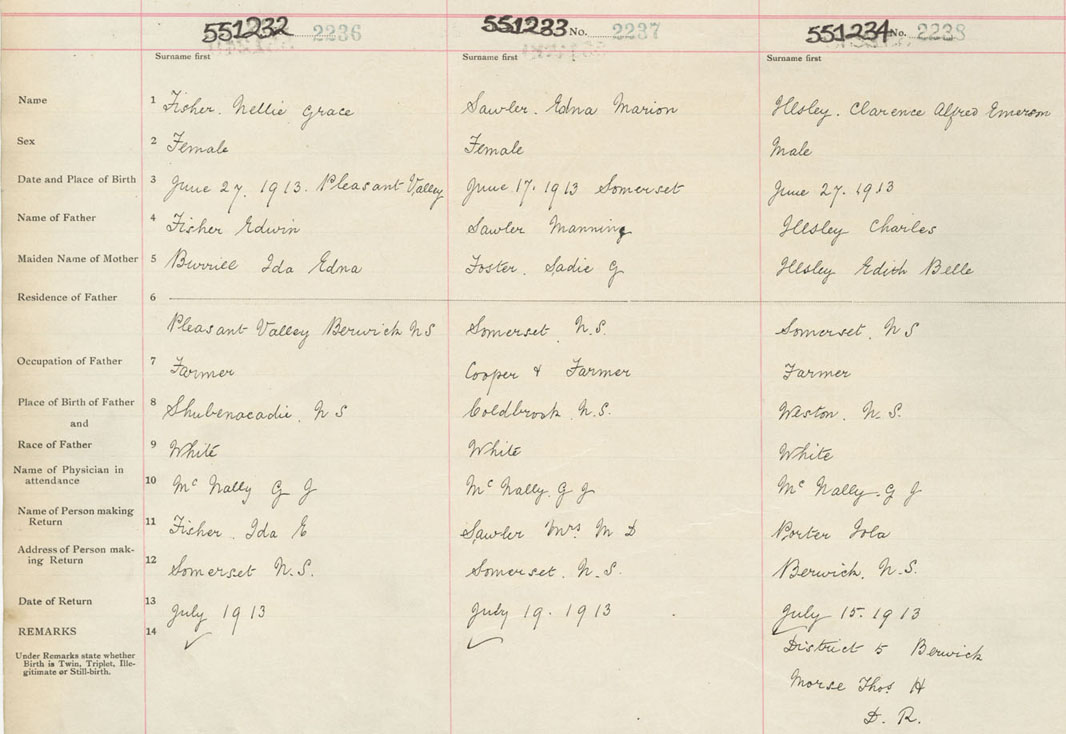 551232 2236 551233 No. 2237 551234 No. 2238
Surname first Surname first Surname first
Name 1 Fisher. Nellie Grace Sawler. Edna Marion Illsley. Clarence Alfred Emerson
Sex 2 Female Female Male
Date and Place of Birth 3 June 27. 1913. Pleasant Valley June 17. 1913 Somerset June 27. 1913
Name of Father 4 Fisher Edwin Sawler Manning Illsley Charles
Maiden Name of Mother 5 Burrill Ida Edna Foster. Sadie G Illsley Edith Belle
Residence of Father 6
Pleasant Valley Berwick N S Somerset. N.S. Somerset. N S
Occupation of Father 7 Farmer Cooper & Farmer Farmer
Place of Birth of Father 8 Shubenacadie. N S Coldbrook. N.S. Weston. N.S.
and
Race of Father 9 White White White
Name of Physician in
attendance 10 Mc Nally G J Mc Nally. G J Mc Nally. G J
Name of Person making
Return 11 Fisher. Ida E Sawler Mrs M D Porter Iola
Address of Person mak-
ing Return 12 Somerset N.S. Somerset. N.S. Berwick. N.S.
Date of Return 13 July 1913 July 19. 1913 July 15. 1913
REMARKS 14
Under Remarks state whether
Birth is Twin, Triplet, Ille-
gitimate or Still-birth.
District 5 Berwick
Morse Thos H
D. R.